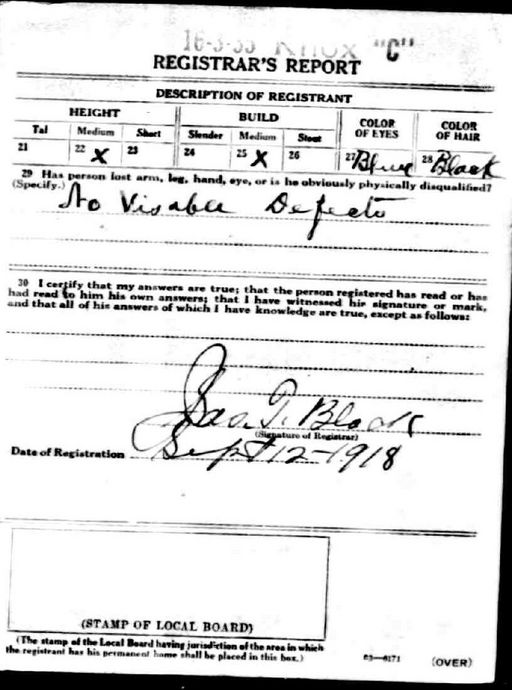 16-3-35 Knox "C"
REGISTRAR'S REPORT
DESCRIPTION OF REGISTRANT
HEIGHT BUILD COLOR OF EYES COLOR OF HAIR
Tal Medium Short Slender Medium Stout
21 22 X 23 24 25 X 26 27 Blue 28 Black
29 Has person lost arm, leg, hand, eye, or is he obviously physically disqualified?
(Specify.) No Visable Defects
30 I certify that my answers are true; that the person registered has read or has
had read to him his own answers; that I have witnessed his signature or mark,
and that all of his answers of which I have knowledge are true, except as follows:
T. Black
(Signature of Registrar)
Date of Registration Sept 12-1918
(STAMP OF LOCAL BOARD)
(The stamp of the Local Board having jurisdiction of the area in which
the registrant has his permanent home shall be placed in this box.)
03—6171 (OVER)